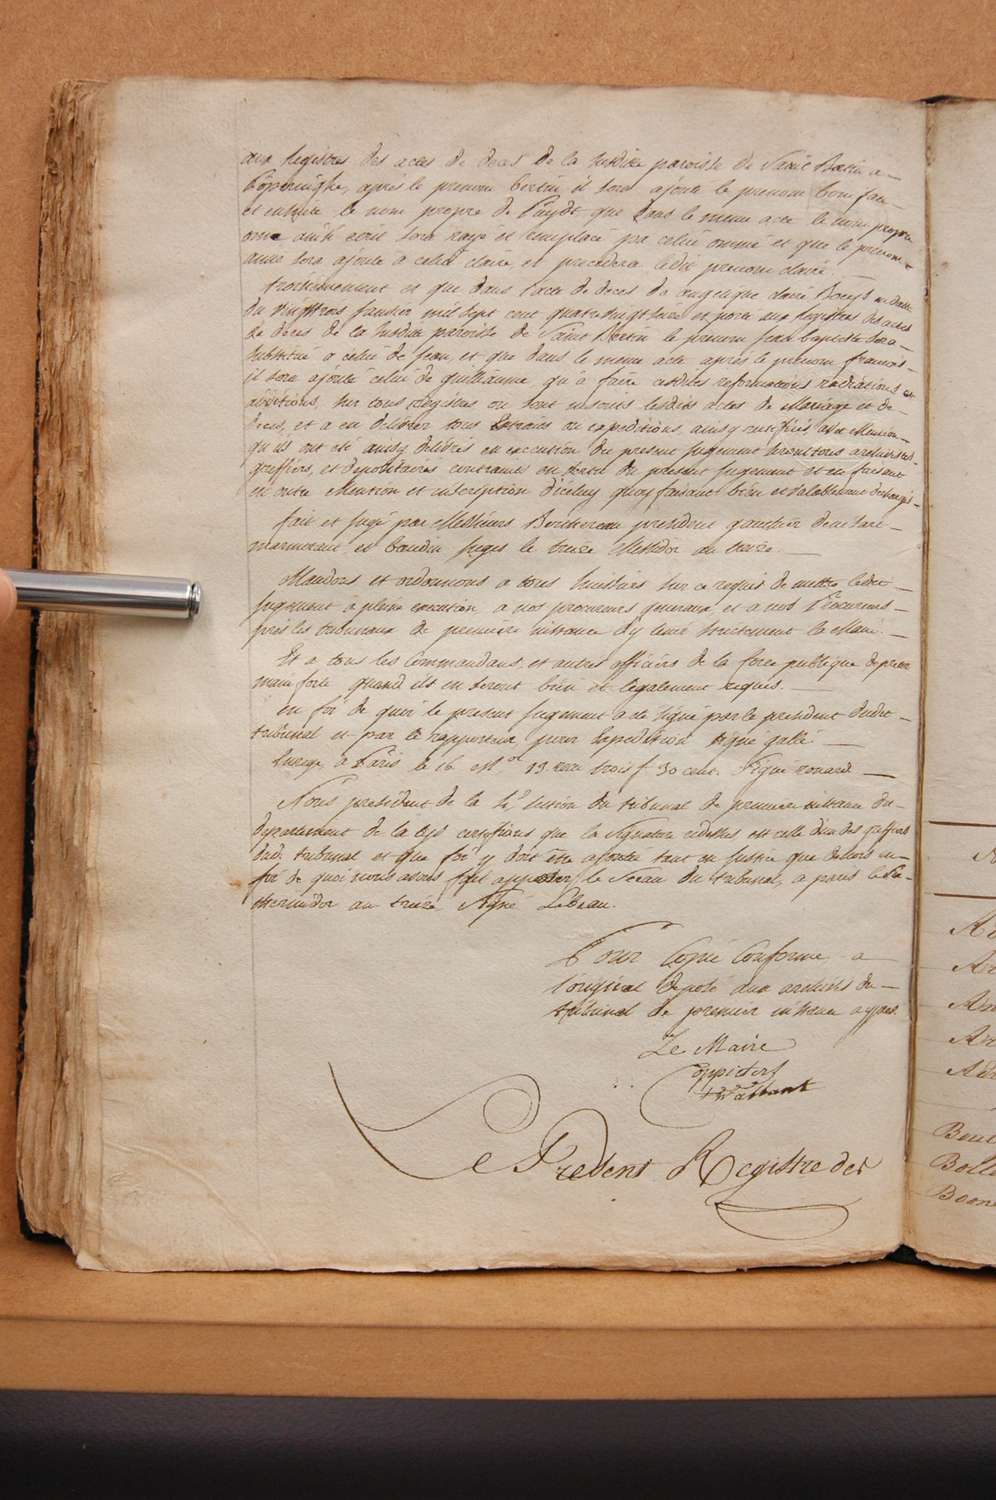 aux Registres des actes de deces de la susdite paroisse de Saint Bertin a
Poperinghe, apres le prenom bertin il sera ajouté le prenom bonifau
et ensuite le nom propre de Puydt que dans le meme acte le nom propre
omé ainsi ecrit sera rayé et remplacé par celui ommé et que le prenom
anne sera ajouté a celui claire, et precedera ledit prenom claire.
troisiemement et que dans l'acte de deces de angelique claire Boeys en date
du vingttrois janvier mil sept cent quatrevingt seize et porté aux Registres des actes
de deces de la susdite paroisse de Saint Bertin le prenom jean baptiste sera
substitué a celui de jean, et que dans le meme acte apres le prenom françois
il sera ajouté celui de guillaume, qu'a faire lesdites reformations radiations et
additions, sur tous registres ou sont inscrits lesdits actes de Mariage et de
deces, et a en delivrer tous Extraits ou expeditions ainsy rectifiés avec Mention
qu'ils ont été ainsy delivrés en execution du present jugement seront tous archivistes
greffiers, et depositaires contraints en vertu du present jugement et en faisant
en outre Mention et inscription d'iceluy quoy faisant bien et valablement dechargés
fait et jugé par Messieurs Berthereau president gauthier
et baudin juges le treize Messidor an treize.
Mandons et ordonnons a tous huissiers sur ce requis de mettre ledit
jugement a pleine execution a nos procureurs generaux et a nos Procureurs
près les tribunaux de premiere instance d'y tenir strictement la Main.
Et a tous les Commandans, et autres officiers de la force publique de preter
main forte quand ils en seront bien et legalement requis.
en foi de quoi le present jugement a eté signé par le president dudit
tribunal et par le rapporteur pour Expedition signé gallé.
Enregé a Paris le 16 Mor 13 Recu trois f. 30 cent. Signé Ronard
Nous president de la 4e section du tribunal de premiere instance du
departement de la certifions que la Signature cidessus est celle d'un des greffiers
dud. tribunal et que foi y doit être ajoutée tant en Justice que dehors en
foi de quoi nous avons fait apposer le Sceau du tribunal, a paris le
thermidor an treize Signé LeBeau.
Pour Copie Conforme a
l'original deposé aux archives du
tribunal de premier instance a ypres.
Le Maire
Le Present Registre des
Ar
Boone